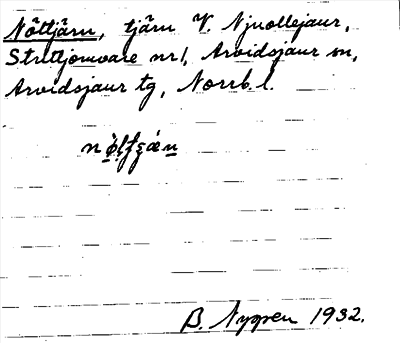 Nôttjärn, tjärn V. Njuollejaur,
Strittjomvare nr 1, Arvidsjaur sn,
Arvidsjaur tg, Norrb. l.
B. Nygren 1932.